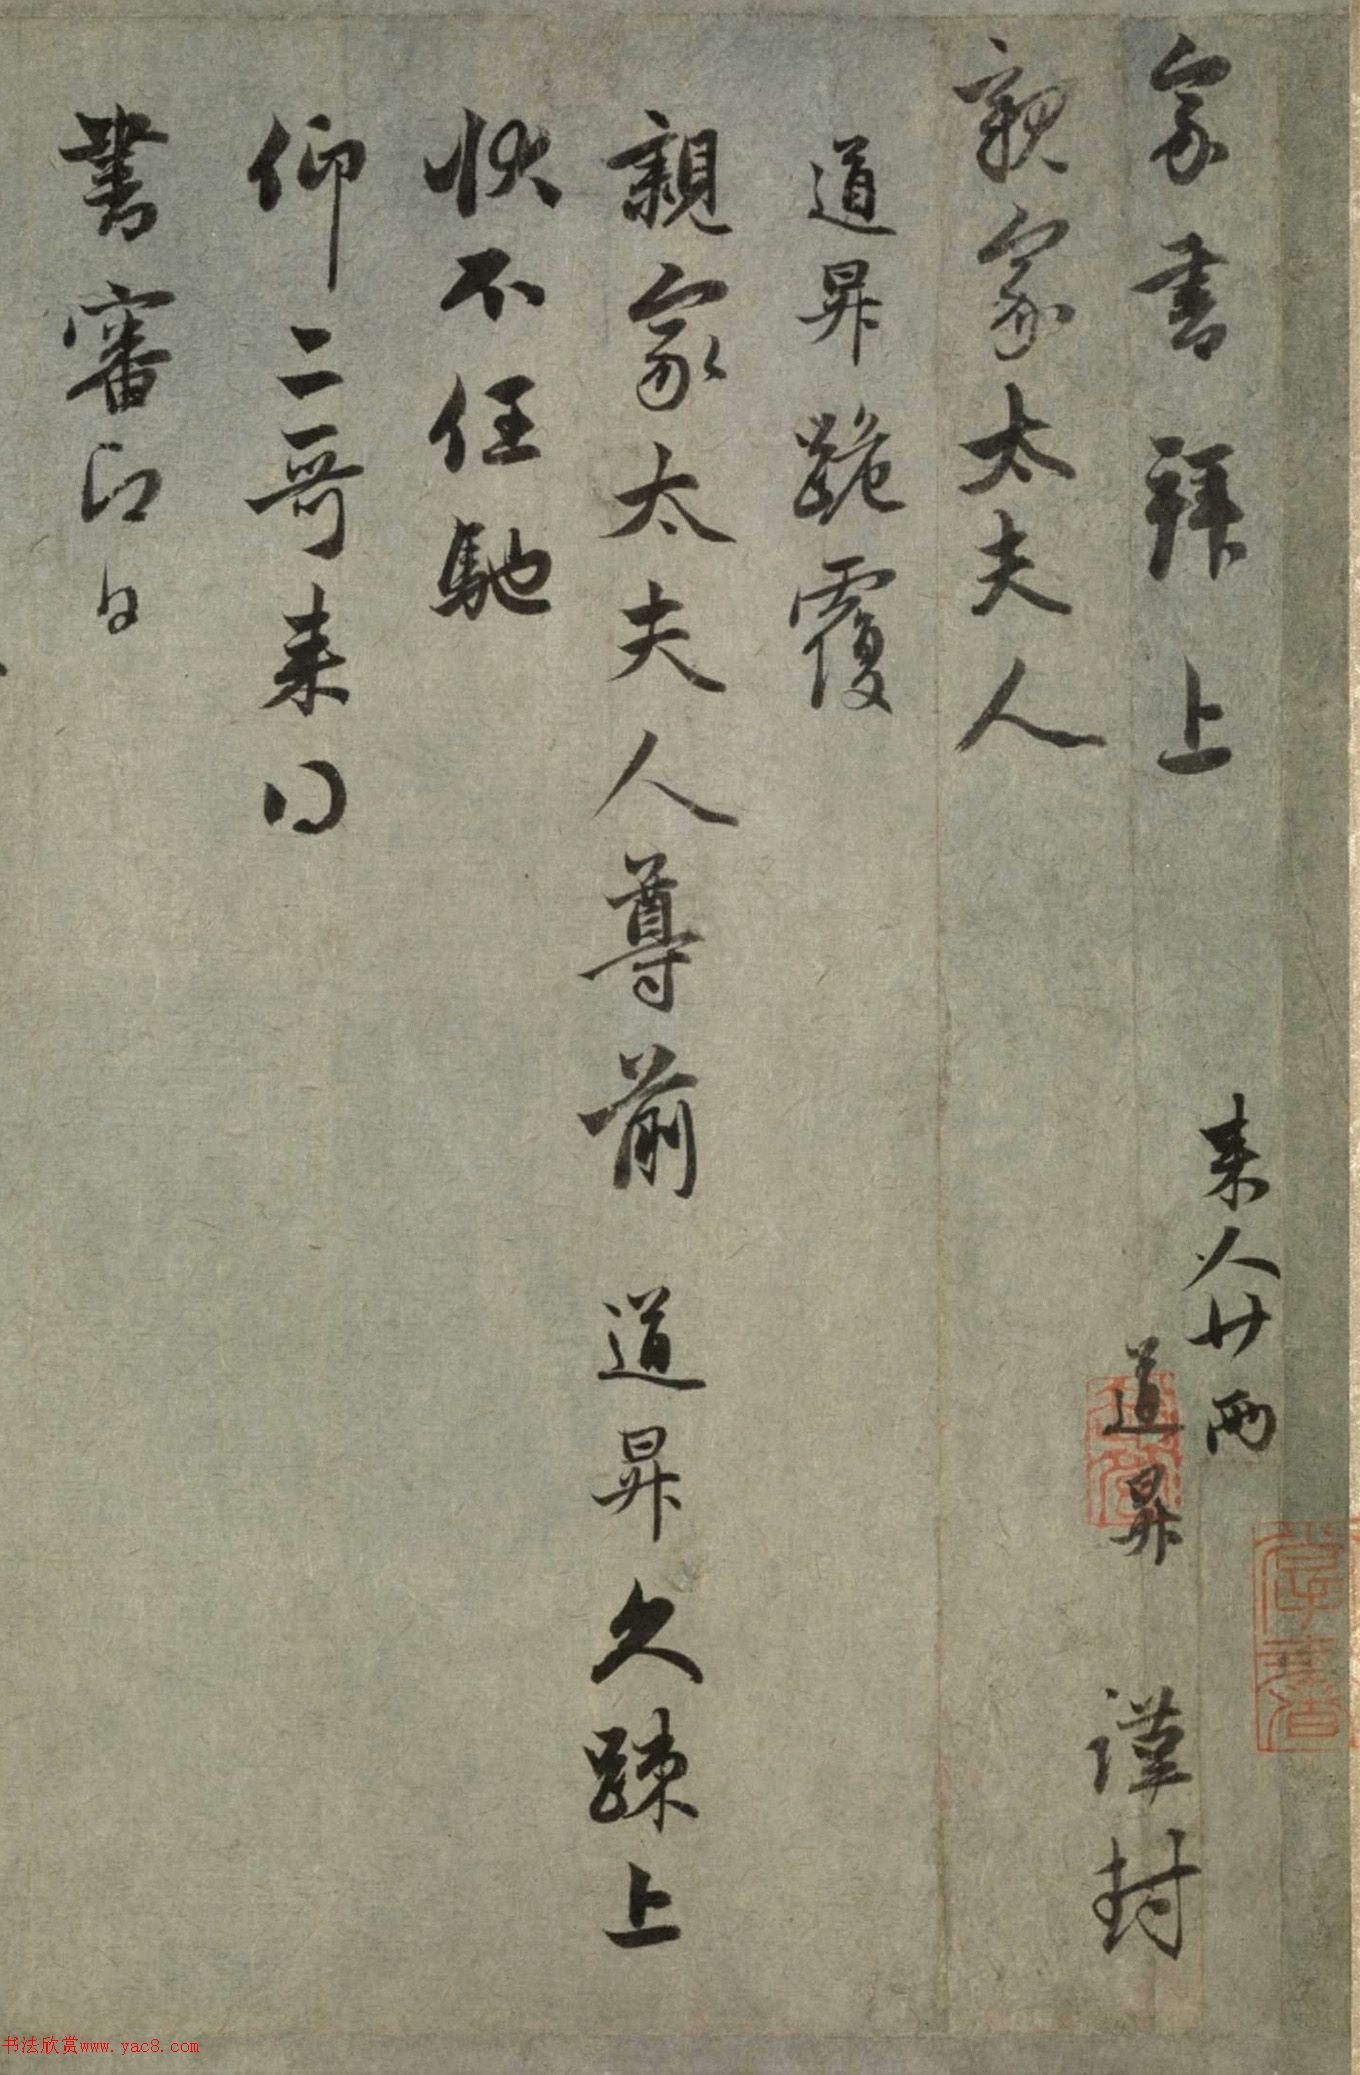 家書拜上
來人廿兩
道昇 謹封
親家太夫人
道昇跪覆
親家太夫人尊前 道昇久疎上
狀不任馳
仰二哥來得
書審即日
书法欣赏www.yac8.com